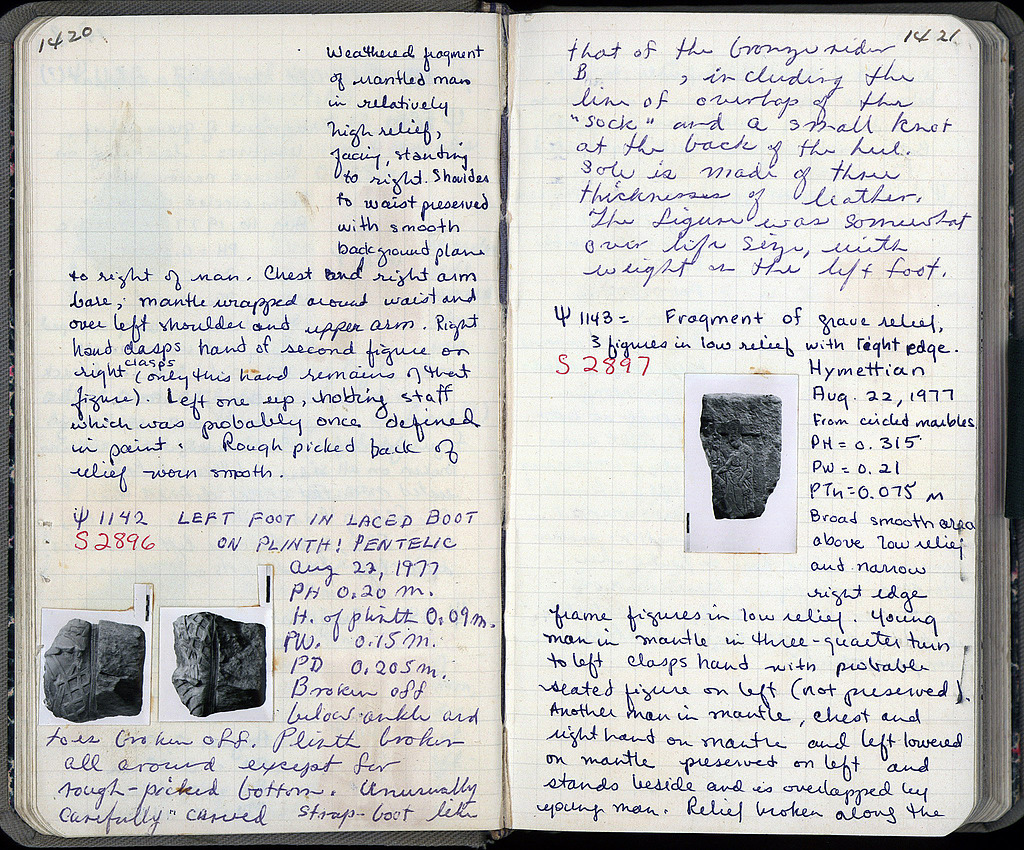 1420
Weathered fragment
of mantled man
in relatively
high relief,
facing, standing
to right. Shoulder
to waist preserved
with smooth
background plane
to right of man. Chest and right arm
bare; mantle wrapped around waist and
over left shoulder and upper arm. Right
hand clasps hand of second figure on
right (only this hand remains of that
clasps
figure). Left one up, holding staff
which was probably once defined
in paint. Rough picked back of
relief worn smooth.
Ψ 1142 LEFT FOOT IN LACED BOOT
S 2896 ON PLINTH! PENTELIC
Aug 22, 1977
PH 0.20 m.
H. of plinth 0.09 m.
PW. 0.15 m.
PD 0.205 m.
Broken off
below ankle and
toes broken off. Plinth broken
all around except for
rough-picked bottom. Unusually
carefully carved strap-boot like
1421
that of the bronze rider
B , including the
line of overlap of the
"sock" and a small knot
at the back of the heel.
Sole is made of three
thicknesses of leather.
The figure was somewhat
over life size, with
weight on the left foot.
Ψ 1143 = Fragment of grave relief,
3 figures in low relief with right edge.
S 2897
Hymettian
Aug. 22, 1977
From circled marbles
PH = 0.315
PW = 0.21
PTh = 0.075 m
Broad smooth area
above low relief
and narrow
right edge
frame figures in low relief. Young
man in mantle in three-quarter turn
to left clasps hand with probable
seated figure on left (not preserved).
Another man in mantle, chest and
right hand on mantle and left lowered
on mantle preserved on left and
stands beside and is overlapped by
young man. Relief broken along the